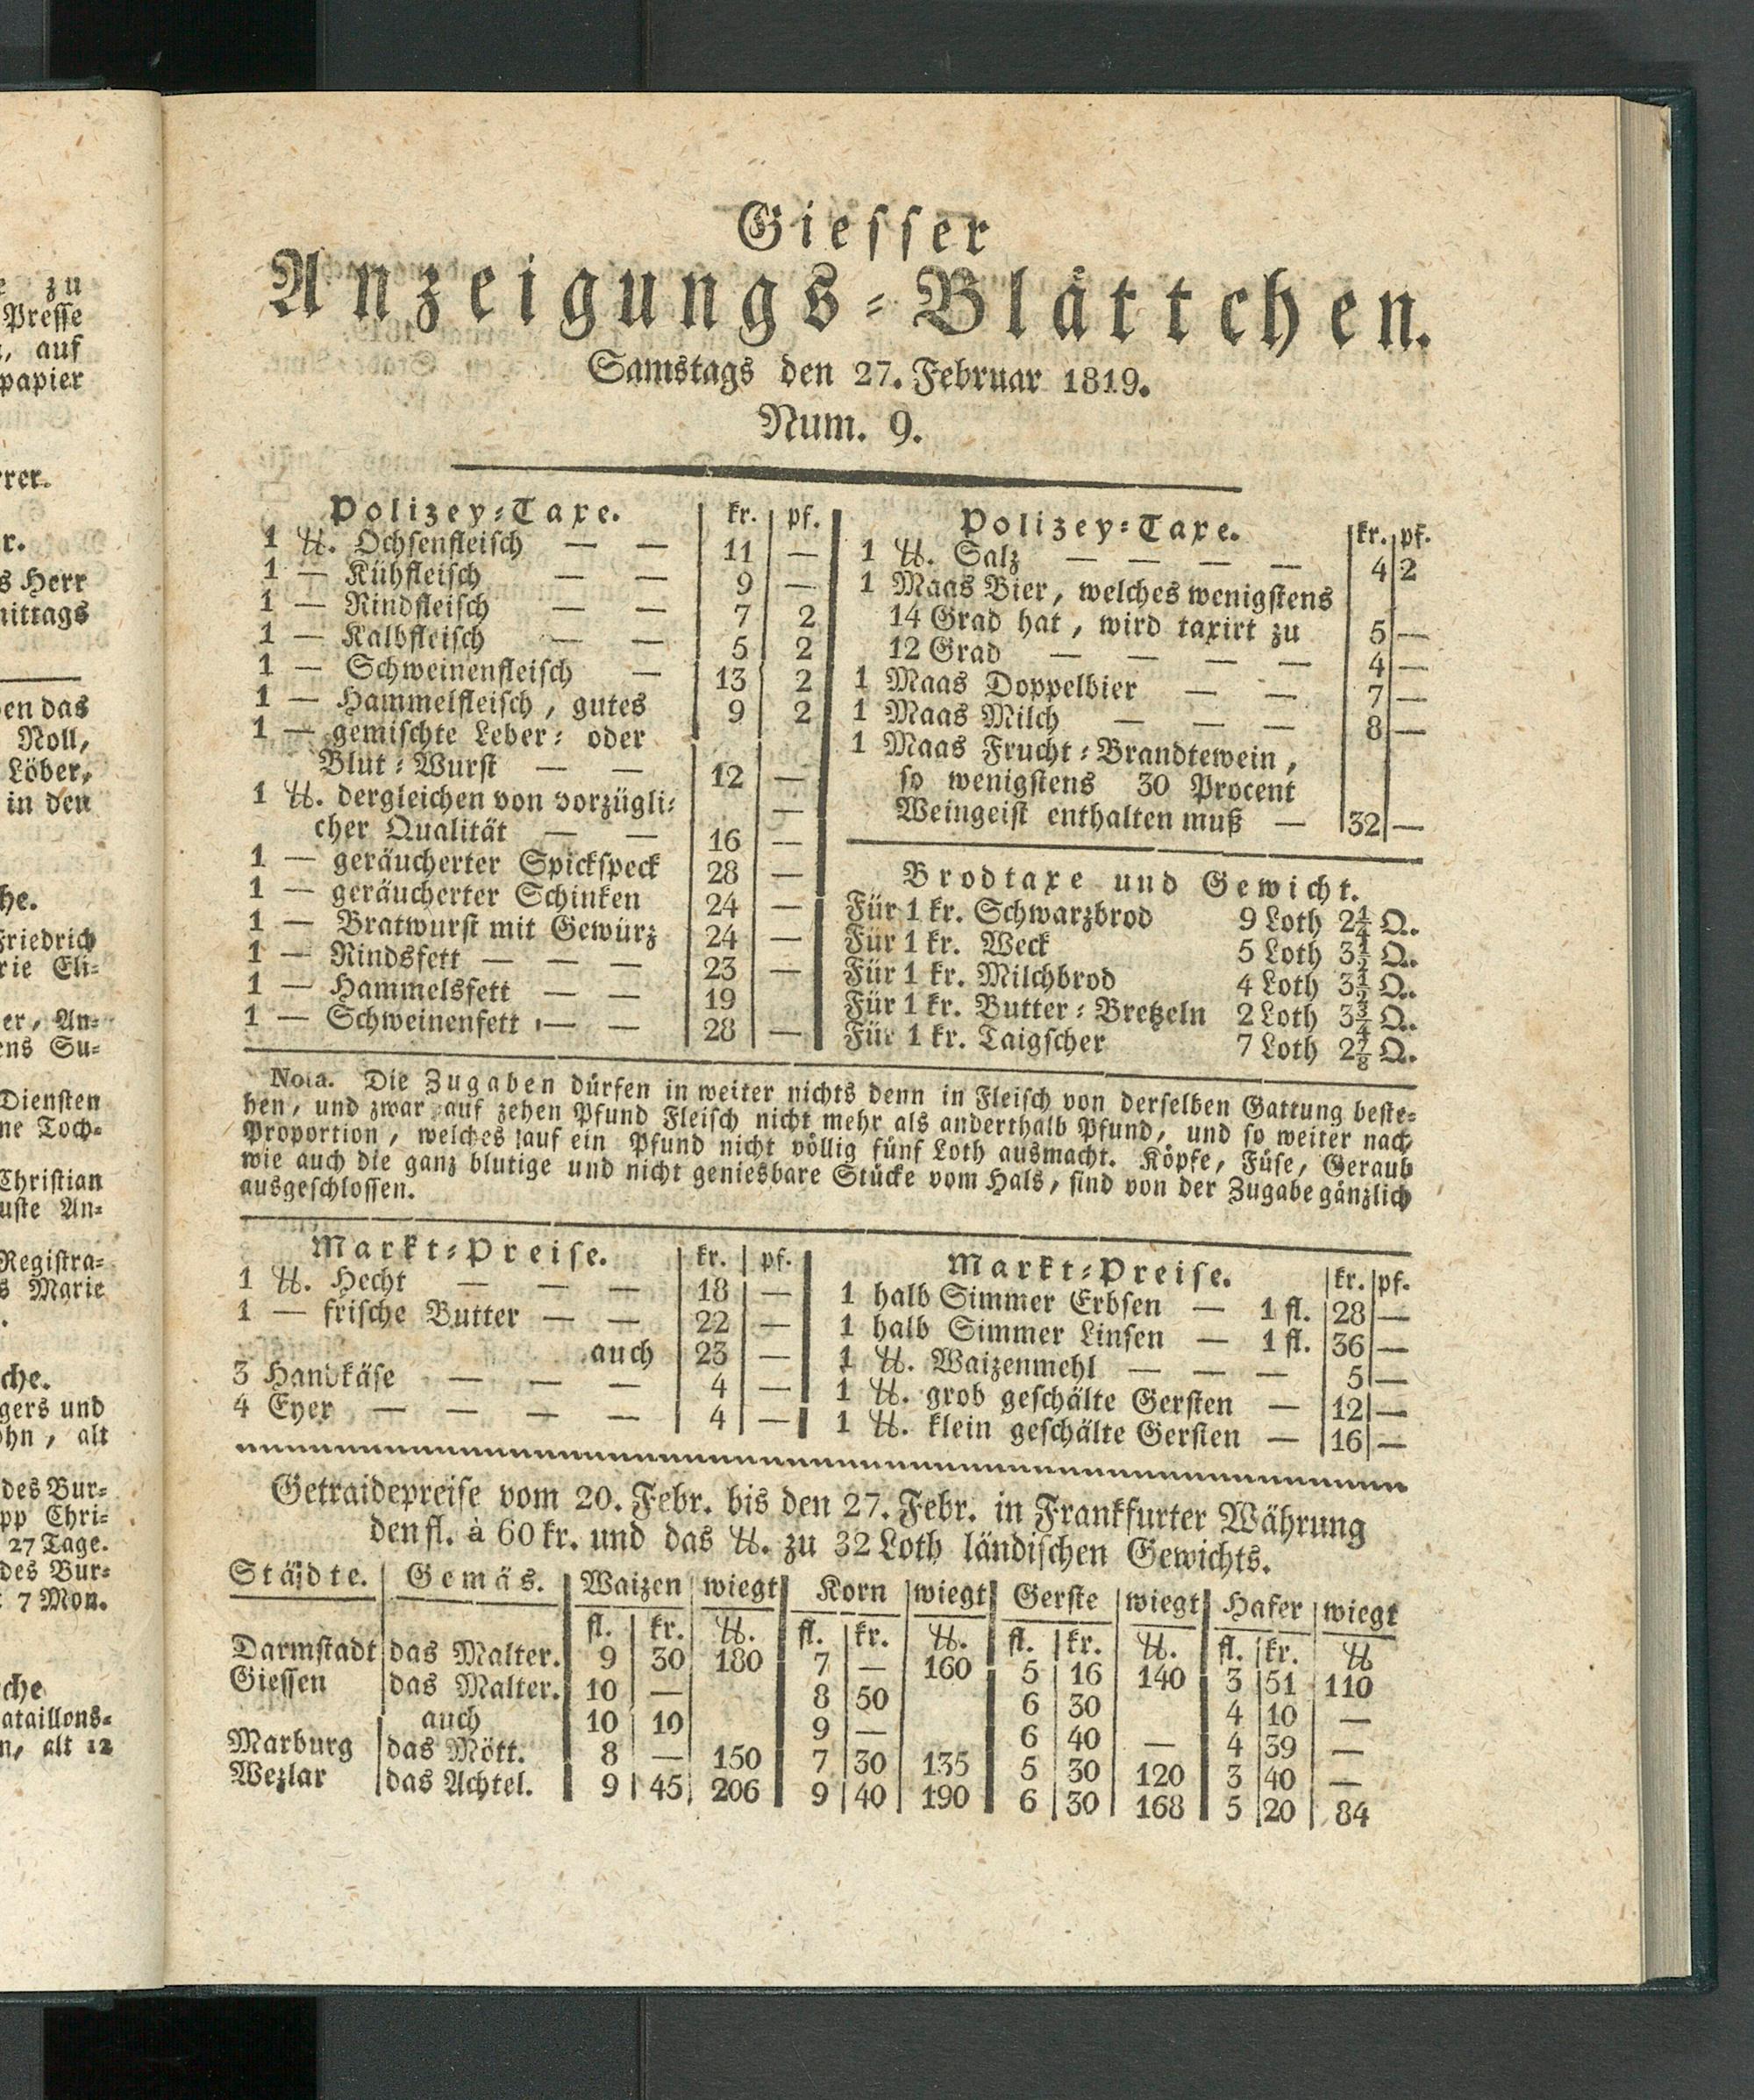 e zu
Presse
, auf
papier
rer.
r.
s Herr
mittags
en das
Noll,
Löber,
in den
he.
Friedrich
rie Eli-
er, An-
ens Su-
Diensten
ne Toch-
Christian
uste An-
Registra-
s Marie
che.
gers und
ohn, alt
des Bur-
pp Chri-
27 Tage.
des Bur-
7 Mon.
che
ataillons-
n, alt 12
Giesser
Anzeigungs-Blättchen.
Samstags den 27. Februar 1819.
Num. 9.
Polizey-Taxe. kr. pf.
1 ℔. Ochsenfleisch — — 11 —
1 — Kühfleisch — — 9 —
1 — Rindfleisch — — 7 2
1 — Kalbfleisch — — 5 2
1 — Schweinenfleisch — 13 2
1 — Hammelfleisch, gutes 9 2
1 — gemischte Leber- oder
Blut-Wurst — — 12 —
1 ℔. dergleichen von vorzügli- —
cher Qualität — — 16 —
1 — geräucherter Spickspeck 28 —
1 — geräucherter Schinken 24 —
1 — Bratwurst mit Gewürz 24 —
1 — Rindsfett — — — 23 —
1 — Hammelsfett — — 19
1 — Schweinenfett — — 28 —
Polizey-Taxe. kr. pf.
1 ℔. Salz — — — — 4 2
1 Maas Bier, welches wenigstens
14 Grad hat, wird taxirt zu 5 —
12 Grad — — — — 4 —
1 Maas Doppelbier — — 7 —
1 Maas Milch — — — 8 —
1 Maas Frucht-Brandtewein,
so wenigstens 30 Procent
Weingeist enthalten muß — 32 —
Brodtaxe und Gewicht.
Für 1 kr. Schwarzbrod 9 Loth 2¼ Q.
Für 1 kr. Weck 5 Loth 3½ Q.
Für 1 kr. Milchbrod 4 Loth 3½ Q.
Für 1 kr. Butter-Bretzeln 2 Loth 3¾ Q.
Für 1 kr. Taigscher 7 Loth 2⅞ Q.
Nota. Die Zugaben dürfen in weiter nichts denn in Fleisch von derselben Gattung beste-
hen, und zwar auf zehen Pfund Fleisch nicht mehr als anderthalb Pfund, und so weiter nach
Proportion, welches auf ein Pfund nicht völlig fünf Loth ausmacht. Köpfe, Füse, Geraub
wie auch die ganz blutige und nicht geniesbare Stücke vom Hals, sind von der Zugabe gänzlich
ausgeschlossen.
Markt-Preise. kr. pf.
1 ℔. Hecht — — — 18 —
1 — frische Butter — — 22 —
auch 23 —
3 Handkäse — — — 4 —
4 Eyer — — — — 4 —
Markt-Preise. kr. pf.
1 halb Simmer Erbsen — 1 fl. 28 —
1 halb Simmer Linsen — 1 fl. 36 —
1 ℔. Waizenmehl — — — 5 —
1 ℔. grob geschälte Gersten — 12 —
1 ℔. klein geschälte Gersten — 16 —
Getraidepreise vom 20. Febr. bis den 27. Febr. in Frankfurter Währung
den fl. à 60 kr. und das ℔. zu 32 Loth ländischen Gewichts.
Städte. Gemäs. Waizen wiegt Korn wiegt Gerste wiegt Hafer wiegt
fl. kr. ℔. fl. kr. ℔. fl. kr. ℔. fl. kr. ℔
Darmstadt das Malter. 9 30 180 7 — 160 5 16 140 3 51 110
Giessen das Malter. 10 — 8 50 6 30 4 10 —
auch 10 10 9 — 6 40 — 4 39 —
Marburg das Mött. 8 — 150 7 30 135 5 30 120 3 40 —
Wezlar das Achtel. 9 45 206 9 40 190 6 30 168 5 20 84